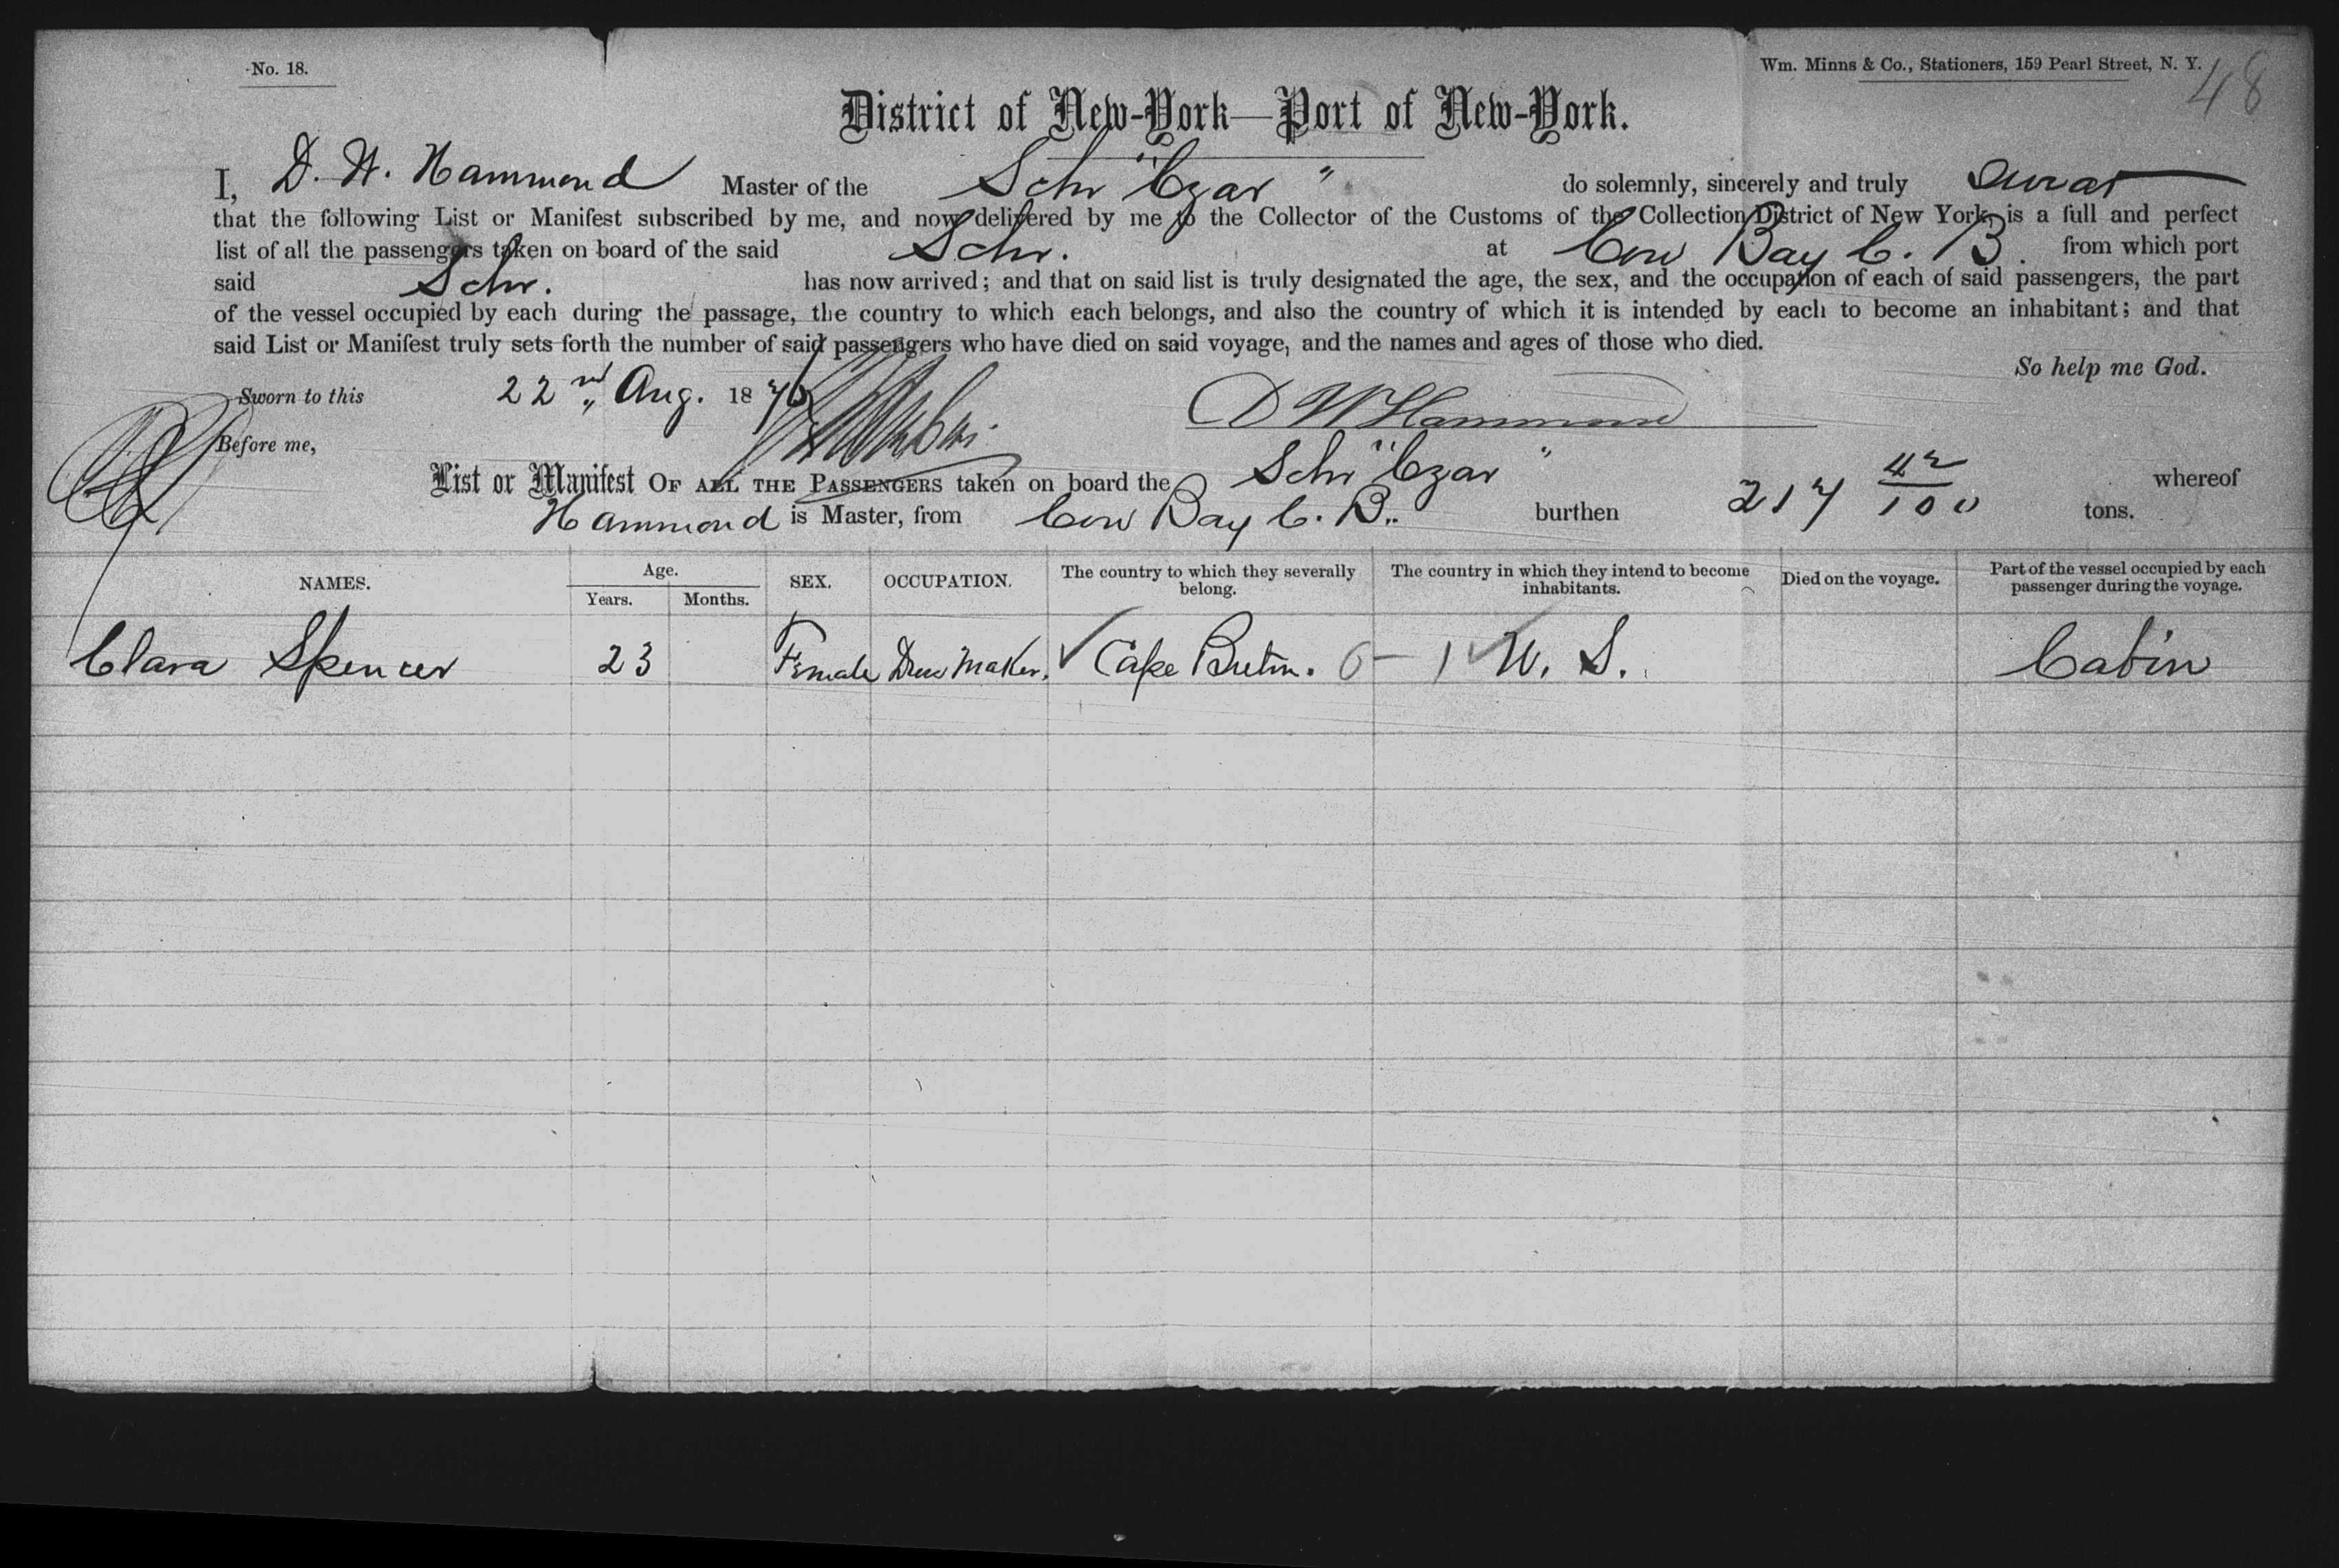 No. 18.
Wm. Minns & Co., Stationers, 159 Pearl Street, N. Y.
48
District of New-York—Port of New-York.
I, D. W. Hammond Master of the Schr "Czar" do solemnly, sincerely and truly swear
that the following List or Manifest subscribed by me, and now delivered by me to the Collector of the Customs of the Collection District of New York, is a full and perfect
list of all the passengers taken on board of the said Schr. at Cow Bay C. B. from which port
said Schr. has now arrived; and that on said list is truly designated the age, the sex, and the occupation of each of said passengers, the part
of the vessel occupied by each during the passage, the country to which each belongs, and also the country of which it is intended by each to become an inhabitant; and that
said List or Manifest truly sets forth the number of said passengers who have died on said voyage, and the names and ages of those who died.
So help me God.
Sworn to this 22nd Aug. 1876
D W Hammond
Before me,
List or Manifest OF ALL THE PASSENGERS taken on board the Schr "Czar" whereof
Hammond is Master, from Cow Bay C. B. burthen 217 42/100 tons.
NAMES. Age. Years. Months. SEX. OCCUPATION. The country to which they severally belong. The country in which they intend to become inhabitants. Died on the voyage. Part of the vessel occupied by each passenger during the voyage.
Clara Spencer 23 Female Dress Maker. ✓ Cape Breton. 6 – 1 ✓ U. S. Cabin